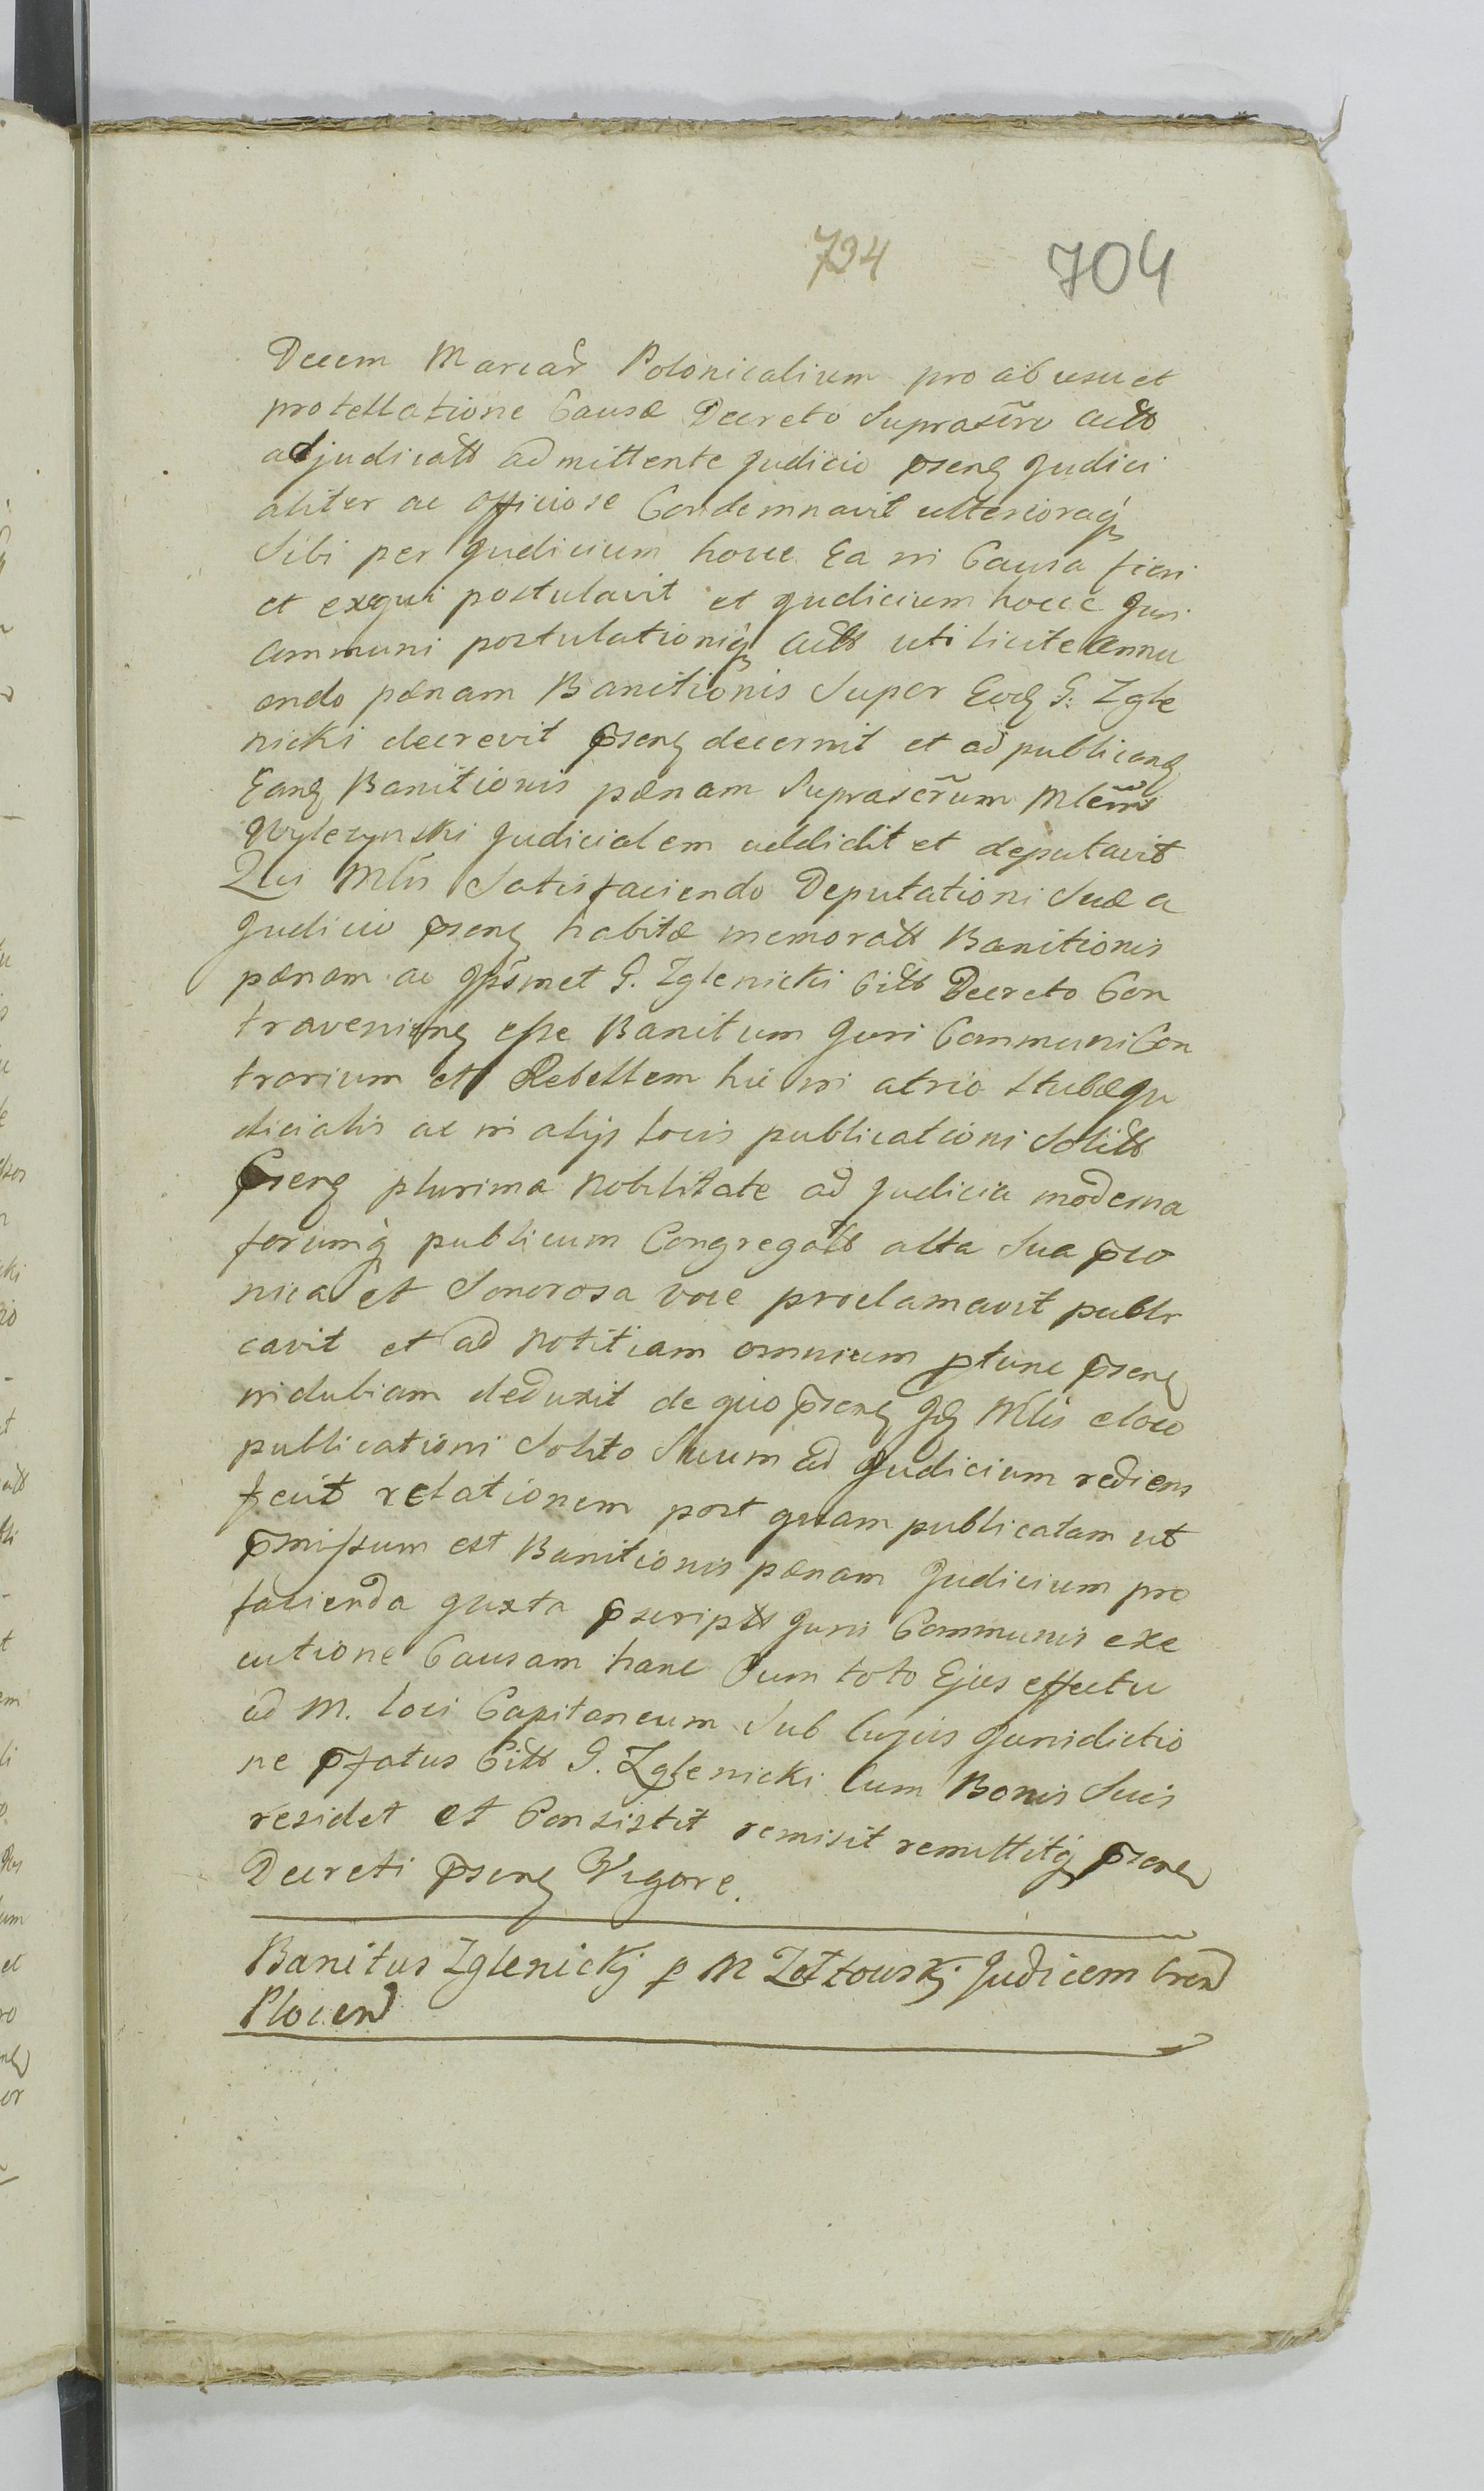 734 704
Decem Marcar Polonicalium pro ab usu et
protellatione Causæ Decreto Suprascro actt
adjudicatt admittente Judicio pseng Judici
aliter ac officiose Condemnavit ulterioraq
Sibi per Judicium hocce Ea in Causa fieri
et exequi postulavit et Judicium hocce Juri
Communi postulationiq actt uti licite annu
endo pænam Banitionis Super Eod G: Zgle
nicki decrevit pseng decernit et ad publicang
Eang Banitionis pænam Suprascrum Mlem
Judicialem addidit et deputavit
Qui Mlis Satisfaciendo Deputationi Suæ a
Judicio pseng habitæ memoratt Banitionis
pænam ac Ipsmet G. Zglenicki Citt Decreto Con
traveniing esse Banitum Juri Communi Con
trarium et Rebellem hic in atrio Stubæ Ju
dicialis ac in alijs locis publicationi Solitt
pseng plurima Nobilitate ad Judicia moderna
forumq publicum Congregatt alta Sua pco
nica et Sonorosa voce proclamavit publi
cavit et ad Notitiam omnium ptunc pseng
indubiam deduxit de quo pseng Id Mlis e loco
publicationi Solito Suum ad Judicium rediens
fecit relationem post quam publicatam ut
pmissum est Banitionis pænam Judicium pro
facienda Juxta pscriptt Juris Communis exe
cutione Causam hanc Cum toto Ejus effectu
ad M. loci Capitaneum Sub Cujus Jurisdictio
ne pfatus Citt G. Zglenicki Cum Bonis Suis
residet et Consistit remisit remittitq pseng
Decreti pseng Vigore.
Banitus Zglenickj p M Zottowskj Judicem
Plocen